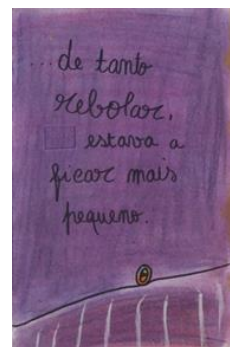 ...de tanto
rebolar,
estava a
ficar mais
pequeno.